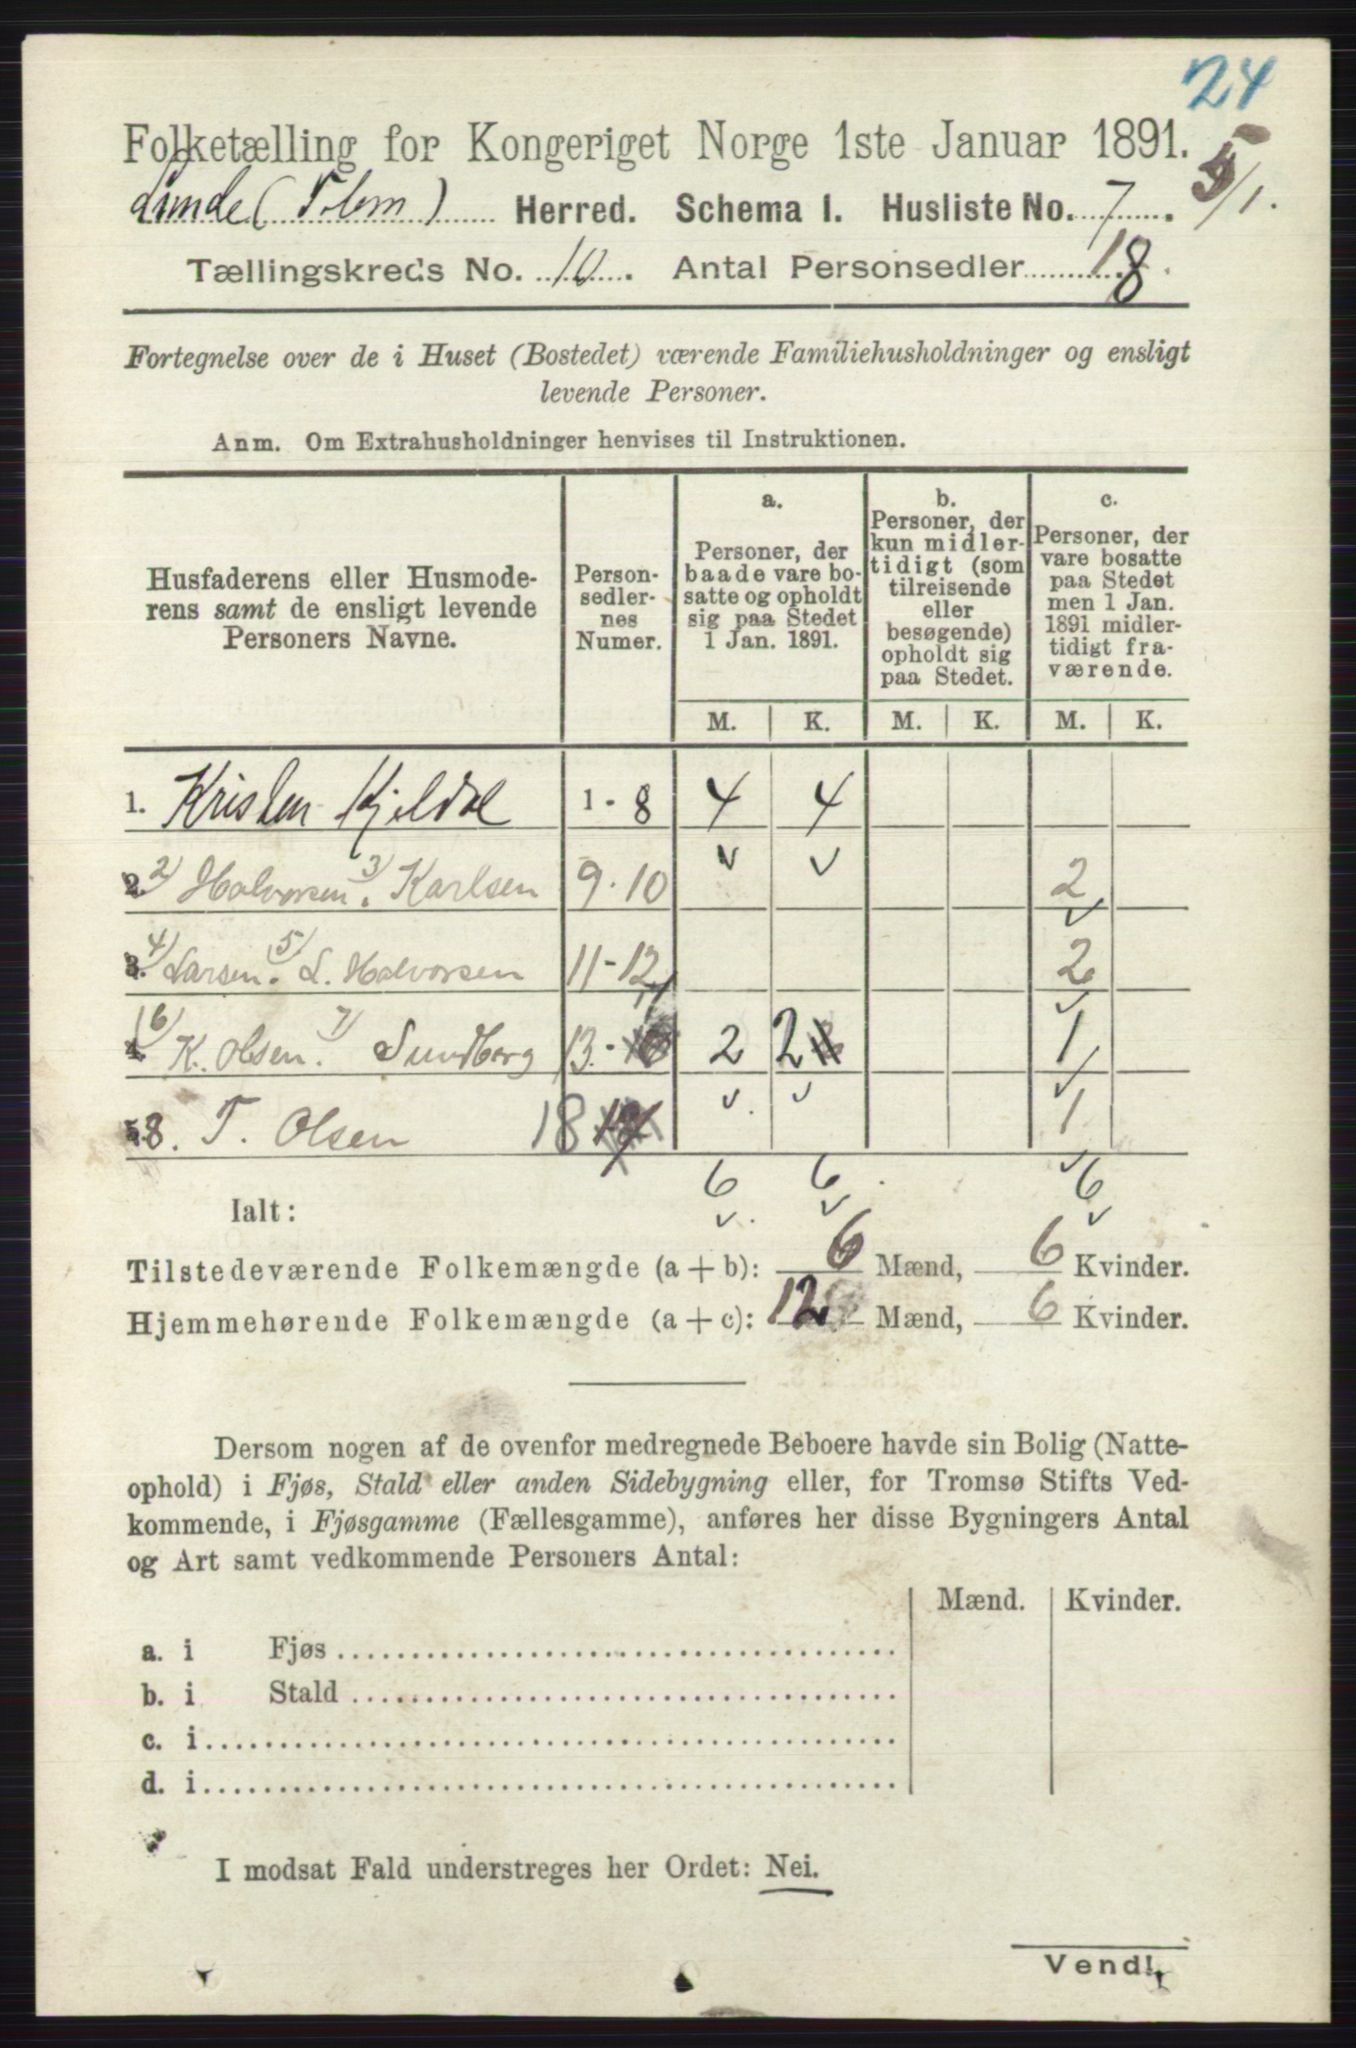 24
Folketælling for Kongeriget Norge 1ste Januar 1891.
5/1.
Lunde (Telem) Herred. Schema I. Husliste No. 7.
Tællingskreds No. 10. Antal Personsedler 18.
Fortegnelse over de i Huset (Bostedet) værende Familiehusholdninger og ensligt
levende Personer.
Anm. Om Extrahusholdninger henvises til Instruktionen.
Husfaderens eller Husmode-
rens samt de ensligt levende
Personers Navne.
Person-
sedler-
nes
Numer.
a.
Personer, der
baade vare bo-
satte og opholdt
sig paa Stedet
1 Jan. 1891.
b.
Personer, der
kun midler-
tidigt (som
tilreisende
eller
besøgende)
opholdt sig
paa Stedet.
c.
Personer, der
vare bosatte
paa Stedet
men 1 Jan.
1891 midler-
tidigt fra-
værende.
M. K. M. K. M. K.
1. Kristen Kjeldal 1 - 8 4 4
2) Halvorsen. 3) Karlsen 9 . 10 2
4) Larsen. 5) L. Halvorsen 11 - 12 2
6) K. Olsen. 7) Sundberg 13. - 17 2 2 1
8. T. Olsen 18 1
Ialt: 6 6 6
Tilstedeværende Folkemængde (a + b): 6 Mænd, 6 Kvinder.
Hjemmehørende Folkemængde (a + c): 12 Mænd, 6 Kvinder.
Dersom nogen af de ovenfor medregnede Beboere havde sin Bolig (Natte-
ophold) i Fjøs, Stald eller anden Sidebygning eller, for Tromsø Stifts Ved-
kommende, i Fjøsgamme (Fællesgamme), anføres her disse Bygningers Antal
og Art samt vedkommende Personers Antal:
Mænd. Kvinder.
a. i Fjøs
b. i Stald
c. i
d. i
I modsat Fald understreges her Ordet: Nei.
Vend!